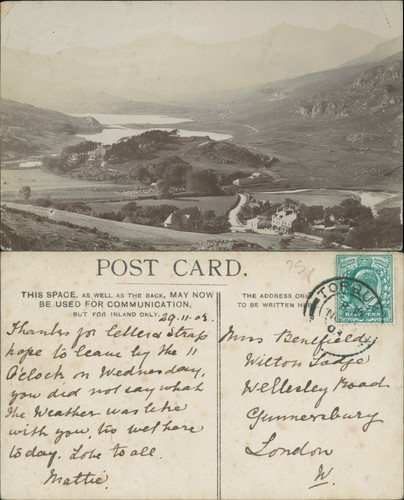 POST CARD.
THIS SPACE, AS WELL AS THE BACK, MAY NOW
BE USED FOR COMMUNICATION,
BUT FOR INLAND ONLY.
29.11.03.
Thanks for letter & strap
hope to leave by the 11
O'clock on Wednesday,
you did not say what
the Weather was like
with you, tis wet here
to day. Love to all.
Mattie.
THE ADDRESS ONLY
TO BE WRITTEN HERE
TORQUAY
Miss Benefield
Wilton Lodge
Wellesley Road
Gunnersbury
London
W.